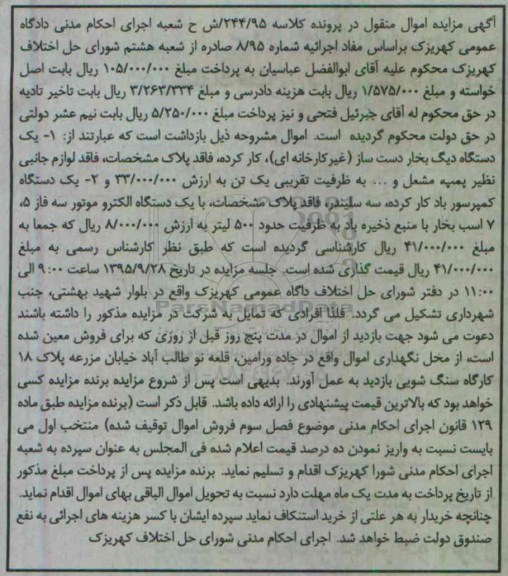 آگهی مزایده اموال منقول در پرونده کلاسه ۲۴۴/۹۵/ش ح شعبه اجرای احکام مدنی دادگاه
عمومی کهریزک براساس مفاد اجرائیه شماره ۸/۹۵ صادره از شعبه هشتم شورای حل اختلاف
کهریزک محکوم علیه آقای ابوالفضل عباسیان به پرداخت مبلغ ۱۰۵/۰۰۰/۰۰۰ ریال بابت اصل
خواسته و مبلغ ۱/۵۷۵/۰۰۰ ریال بابت هزینه دادرسی و مبلغ ۳/۲۶۳/۳۳۴ ریال بابت تاخیر تادیه
در حق محکوم له آقای جبرئیل فتحی و نیز پرداخت مبلغ ۵/۲۵۰/۰۰۰ ریال بابت نیم عشر دولتی
در حق دولت محکوم گردیده است. اموال مشروحه ذیل بازداشت است که عبارتند از: ۱- یک
دستگاه دیگ بخار دست ساز (غیرکارخانه ای)، کار کرده، فاقد پلاک مشخصات، فاقد لوازم جانبی
نظیر پمپ، مشعل و ... به ظرفیت تقریبی یک تن به ارزش ۳۳/۰۰۰/۰۰۰ و ۲- یک دستگاه
کمپرسور باد کار کرده، سه سلیندر، فاقد پلاک مشخصات، با یک دستگاه الکترو موتور سه فاز ۵،
۷ اسب بخار با منبع ذخیره باد به ظرفیت حدود ۵۰۰ لیتر به ارزش ۸/۰۰۰/۰۰۰ ریال که جمعا به
مبلغ ۴۱/۰۰۰/۰۰۰ ریال کارشناسی گردیده است که طبق نظر کارشناس رسمی به مبلغ
۴۱/۰۰۰/۰۰۰ ریال قیمت گذاری شده است. جلسه مزایده در تاریخ ۱۳۹۵/۹/۲۸ ساعت ۹:۰۰ الی
۱۱:۰۰ در دفتر شورای حل اختلاف داگاه عمومی کهریزک واقع در بلوار شهید بهشتی، جنب
شهرداری تشکیل می گردد. فلذا افرادی که تمایل به شرکت در مزایده مذکور را داشته باشند
دعوت می شود جهت بازدید از اموال در مدت پنج روز قبل از روزی که برای فروش معین شده
است، از محل نگهداری اموال واقع در جاده ورامین، قلعه نو طالب آباد خیابان مزرعه پلاک ۱۸
کارگاه سنگ شویی بازدید به عمل آورند. بدیهی است پس از شروع مزایده برنده مزایده کسی
خواهد بود که بالاترین قیمت پیشنهادی را ارائه داده باشد. قابل ذکر است (برنده مزایده طبق ماده
۱۲۹ قانون اجرای احکام مدنی موضوع فصل سوم فروش اموال توقیف شده) منتخب اول می
بایست نسبت به واریز نمودن ده درصد قیمت اعلام شده فی المجلس به عنوان سپرده به شعبه
اجرای احکام مدنی شورا کهریزک اقدام و تسلیم نماید. برنده مزایده پس از پرداخت مبلغ مذکور
از تاریخ پرداخت به مدت یک ماه مهلت دارد نسبت به تحویل اموال الباقی بهای اموال اقدام نماید.
چنانچه خریدار به هر علتی از خرید استنکاف نماید سپرده ایشان با کسر هزینه های اجرائی به نفع
صندوق دولت ضبط خواهد شد. اجرای احکام مدنی شورای حل اختلاف کهریزک